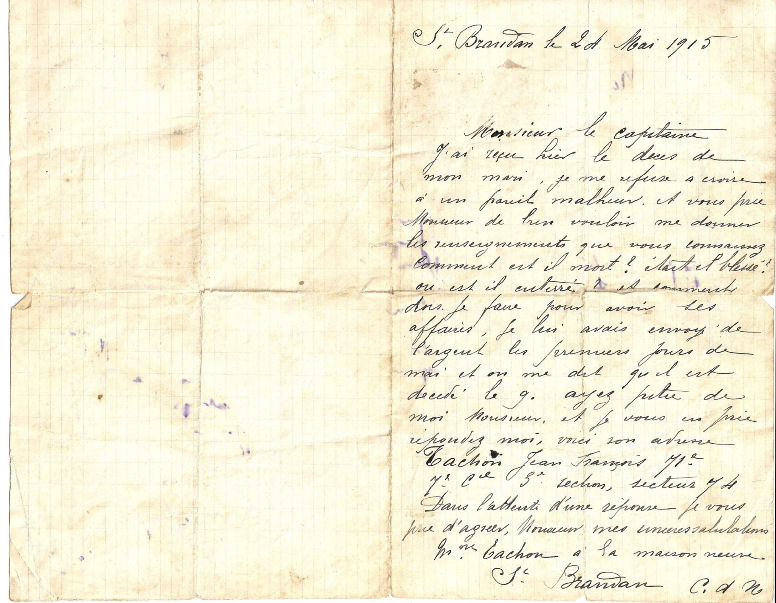 St Brandan le 24 Mai 1915
Monsieur le capitaine
J'ai reçu hier le deces de
mon mari, je me refuse a croire
à un pareil malheur. et vous prie
Monsieur de bien vouloir me donner
les renseignements que vous connaissez
Comment est il mort? était il blessé?
ou est il enterré? et comment
dois je faire pour avoir ses
affaires, Je lui avais envoyé de
l'argent les premiers jours de
mai et on me dit qu'il est
decedé le 9. ayez pitie de
moi Monsieur, et je vous en prie
repondez moi, voici son adresse
Tachon Jean François 71e
7e Cie 3e section, secteur 74
Dans l'attente d'une réponse je vous
prie d'agreer, Monsieur mes sinceres salutations
Mme Tachon a la maison neuve
St Brandan C. d N